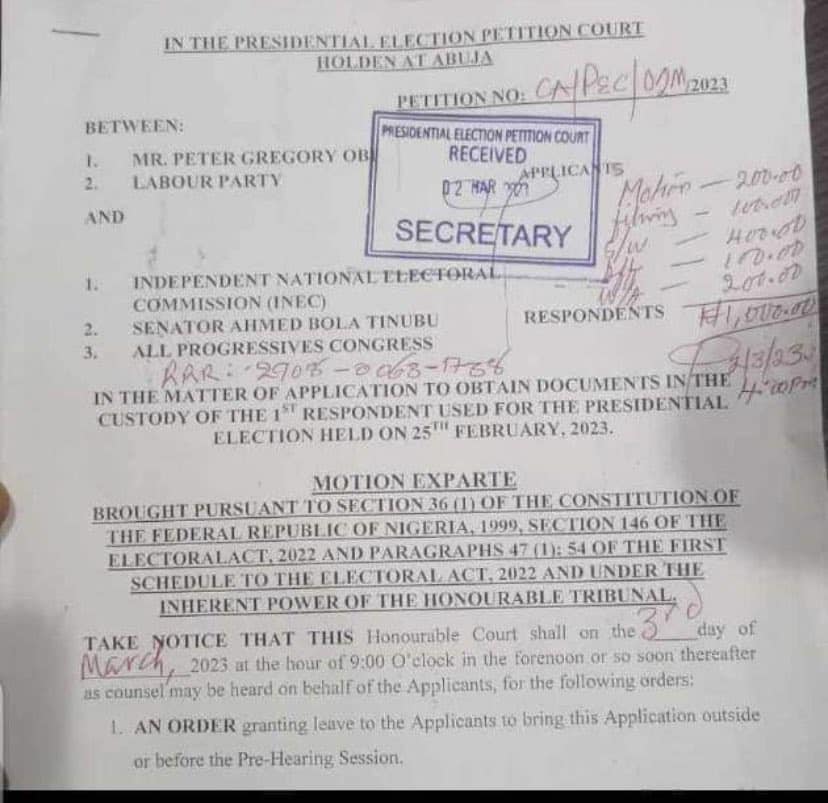 IN THE PRESIDENTIAL ELECTION PETITION COURT
HOLDEN AT ABUJA
PETITION NO: CA/PEC/09M/2023
BETWEEN:
1. MR. PETER GREGORY OBI
2. LABOUR PARTY
APPLICANTS
PRESIDENTIAL ELECTION PETITION COURT
RECEIVED
02 MAR
SECRETARY
Motion - 200.00
filing - 100.00
400.00
100.00
200.00
₦1,000.00
AND
1. INDEPENDENT NATIONAL ELECTORAL
COMMISSION (INEC)
2. SENATOR AHMED BOLA TINUBU
3. ALL PROGRESSIVES CONGRESS
RESPONDENTS
RRR:
4:00pm
IN THE MATTER OF APPLICATION TO OBTAIN DOCUMENTS IN THE
CUSTODY OF THE 1ST RESPONDENT USED FOR THE PRESIDENTIAL
ELECTION HELD ON 25TH FEBRUARY, 2023.
MOTION EXPARTE
BROUGHT PURSUANT TO SECTION 36 (1) OF THE CONSTITUTION OF
THE FEDERAL REPUBLIC OF NIGERIA, 1999, SECTION 146 OF THE
ELECTORALACT, 2022 AND PARAGRAPHS 47 (1); 54 OF THE FIRST
SCHEDULE TO THE ELECTORAL ACT, 2022 AND UNDER THE
INHERENT POWER OF THE HONOURABLE TRIBUNAL.
TAKE NOTICE THAT THIS Honourable Court shall on the 3rd day of
March, 2023 at the hour of 9:00 O'clock in the forenoon or so soon thereafter
as counsel may be heard on behalf of the Applicants, for the following orders:
1. AN ORDER granting leave to the Applicants to bring this Application outside
or before the Pre-Hearing Session.